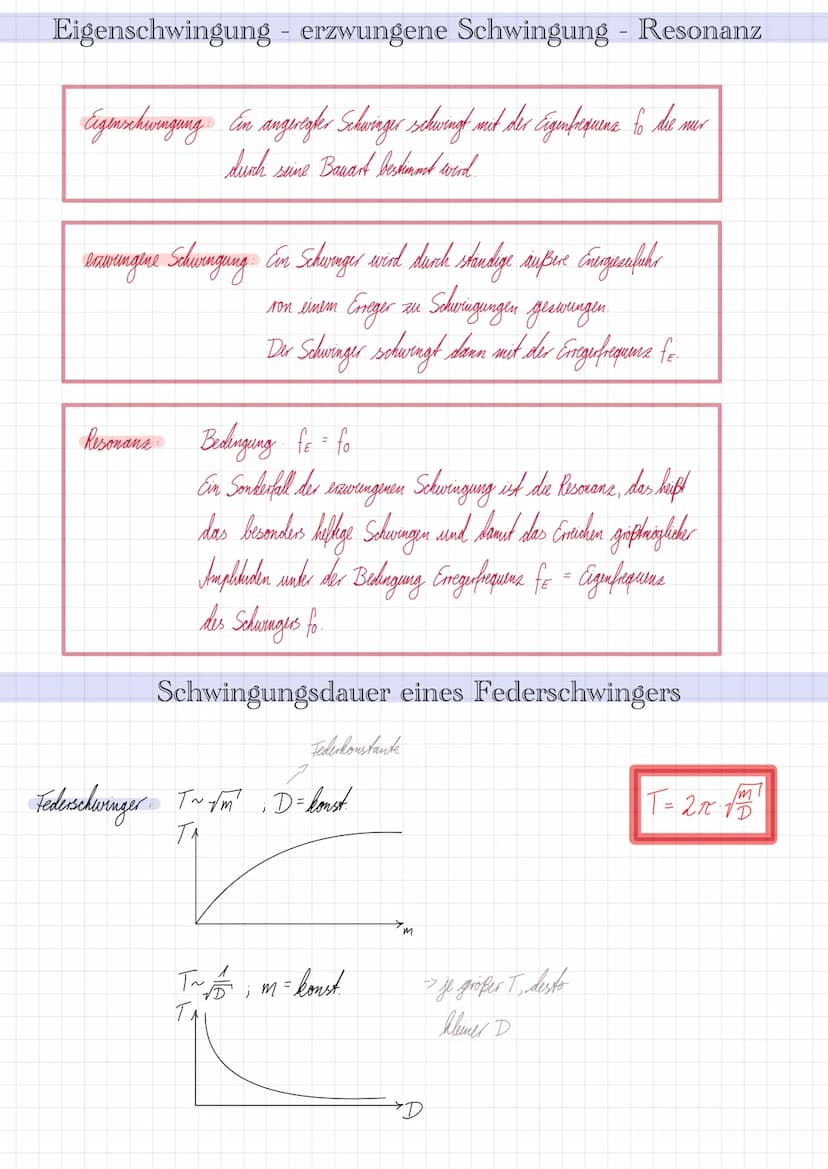 Eigenschwingung - erzwungene Schwingung - Resonanz
Eigenschwingung: Ein angeregter Schwinger schwingt mit der Eigenfrequenz f₀ die nur
durch seine Bauart bestimmt wird.
erzwungene Schwingung: Ein Schwinger wird durch ständige äußere Energiezufuhr
von einem Erreger zu Schwingungen gezwungen.
Der Schwinger schwingt dann mit der Erregerfrequenz f_E.
Resonanz: Bedingung: f_E = f₀
Ein Sonderfall der erzwungenen Schwingung ist die Resonanz, das heißt
das besonders heftige Schwingen und damit das Erreichen größtmöglicher
Amplituden unter der Bedingung Erregerfrequenz f_E = Eigenfrequenz
des Schwingers f₀.
Schwingungsdauer eines Federschwingers
Federkonstante
Federschwinger: T ~ √m , D = konst.
T = 2π · √(m/D)
T
m
T ~ 1/√D ; m = konst.
→ je größer T, desto
kleiner D
T
D